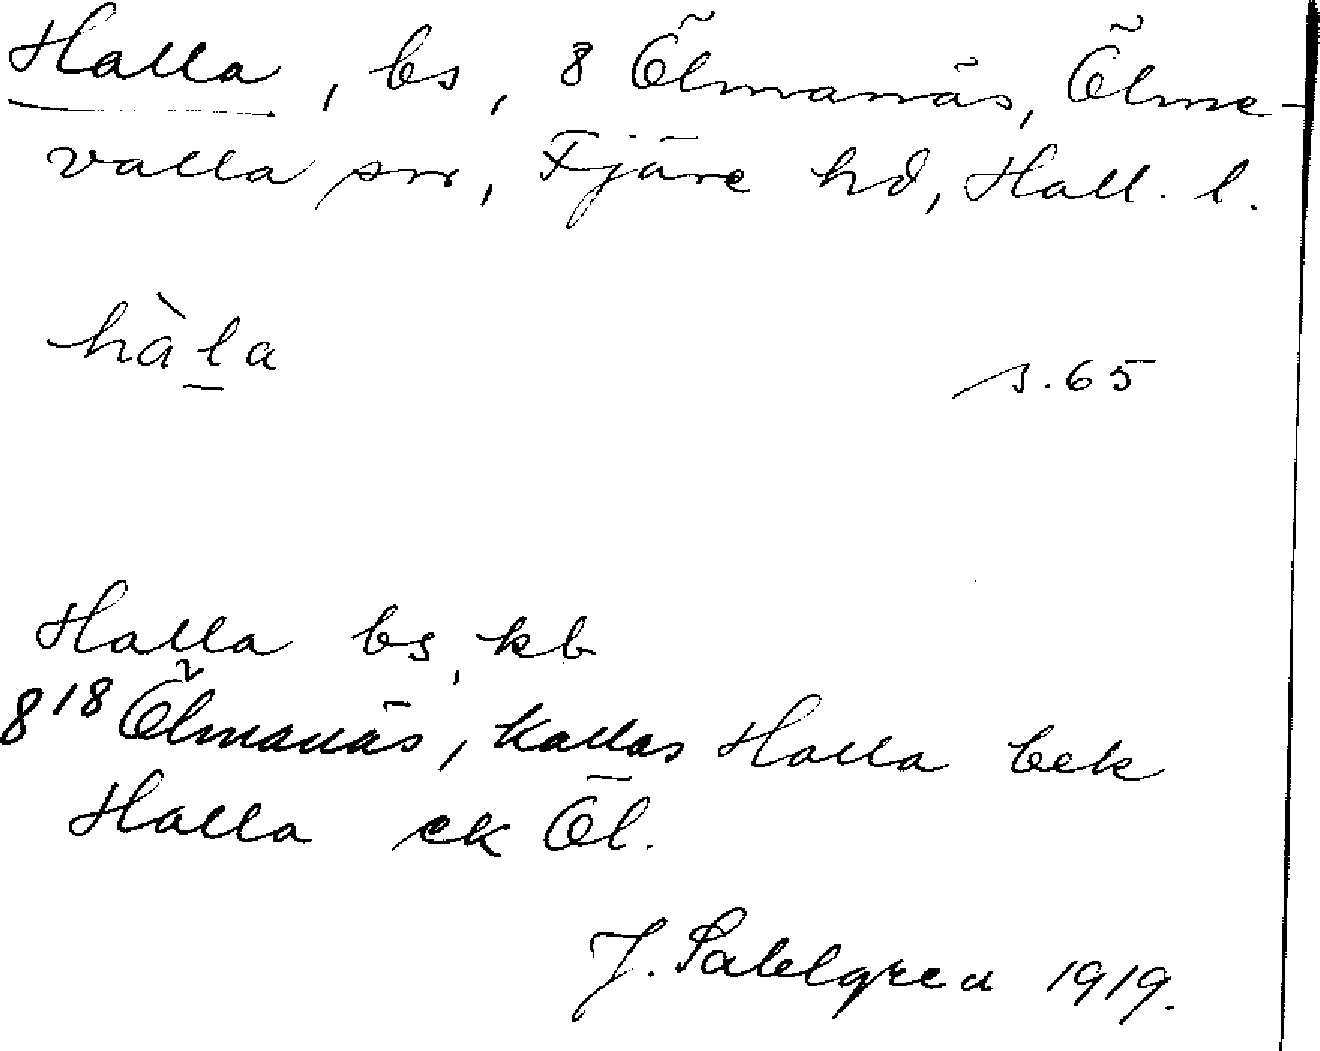 Halla, bs, 8 Ölmanäs, Ölme-
valla sn, Fjäre hd, Hall. l.
hàl̲a
s. 65
Halla bs, kb
8¹⁸ Ölmanäs, kallas Halla bek
Halla ek Öl.
J. Sahlgren 1919.